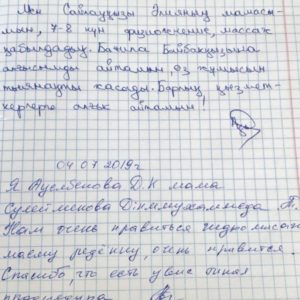 Мен Саблауқызы Элияның мамасы-
мын, 7-8 күн физиолечение, массаж
қабылдадық. Бакила Байбакқызына
алғысымды айтамын, өз жұмысын
тиянақты жасады. Барлық қызмет-
керлерге алғыс айтамын!
04 07 2019г
Я Ауелбекова Д.К мама
Сулейменова Дінмухаммеда
Нам очень нравиться гидромассаж
моему ребёнку, очень нравится.
Спасибо, что есть у вас такая
процедура